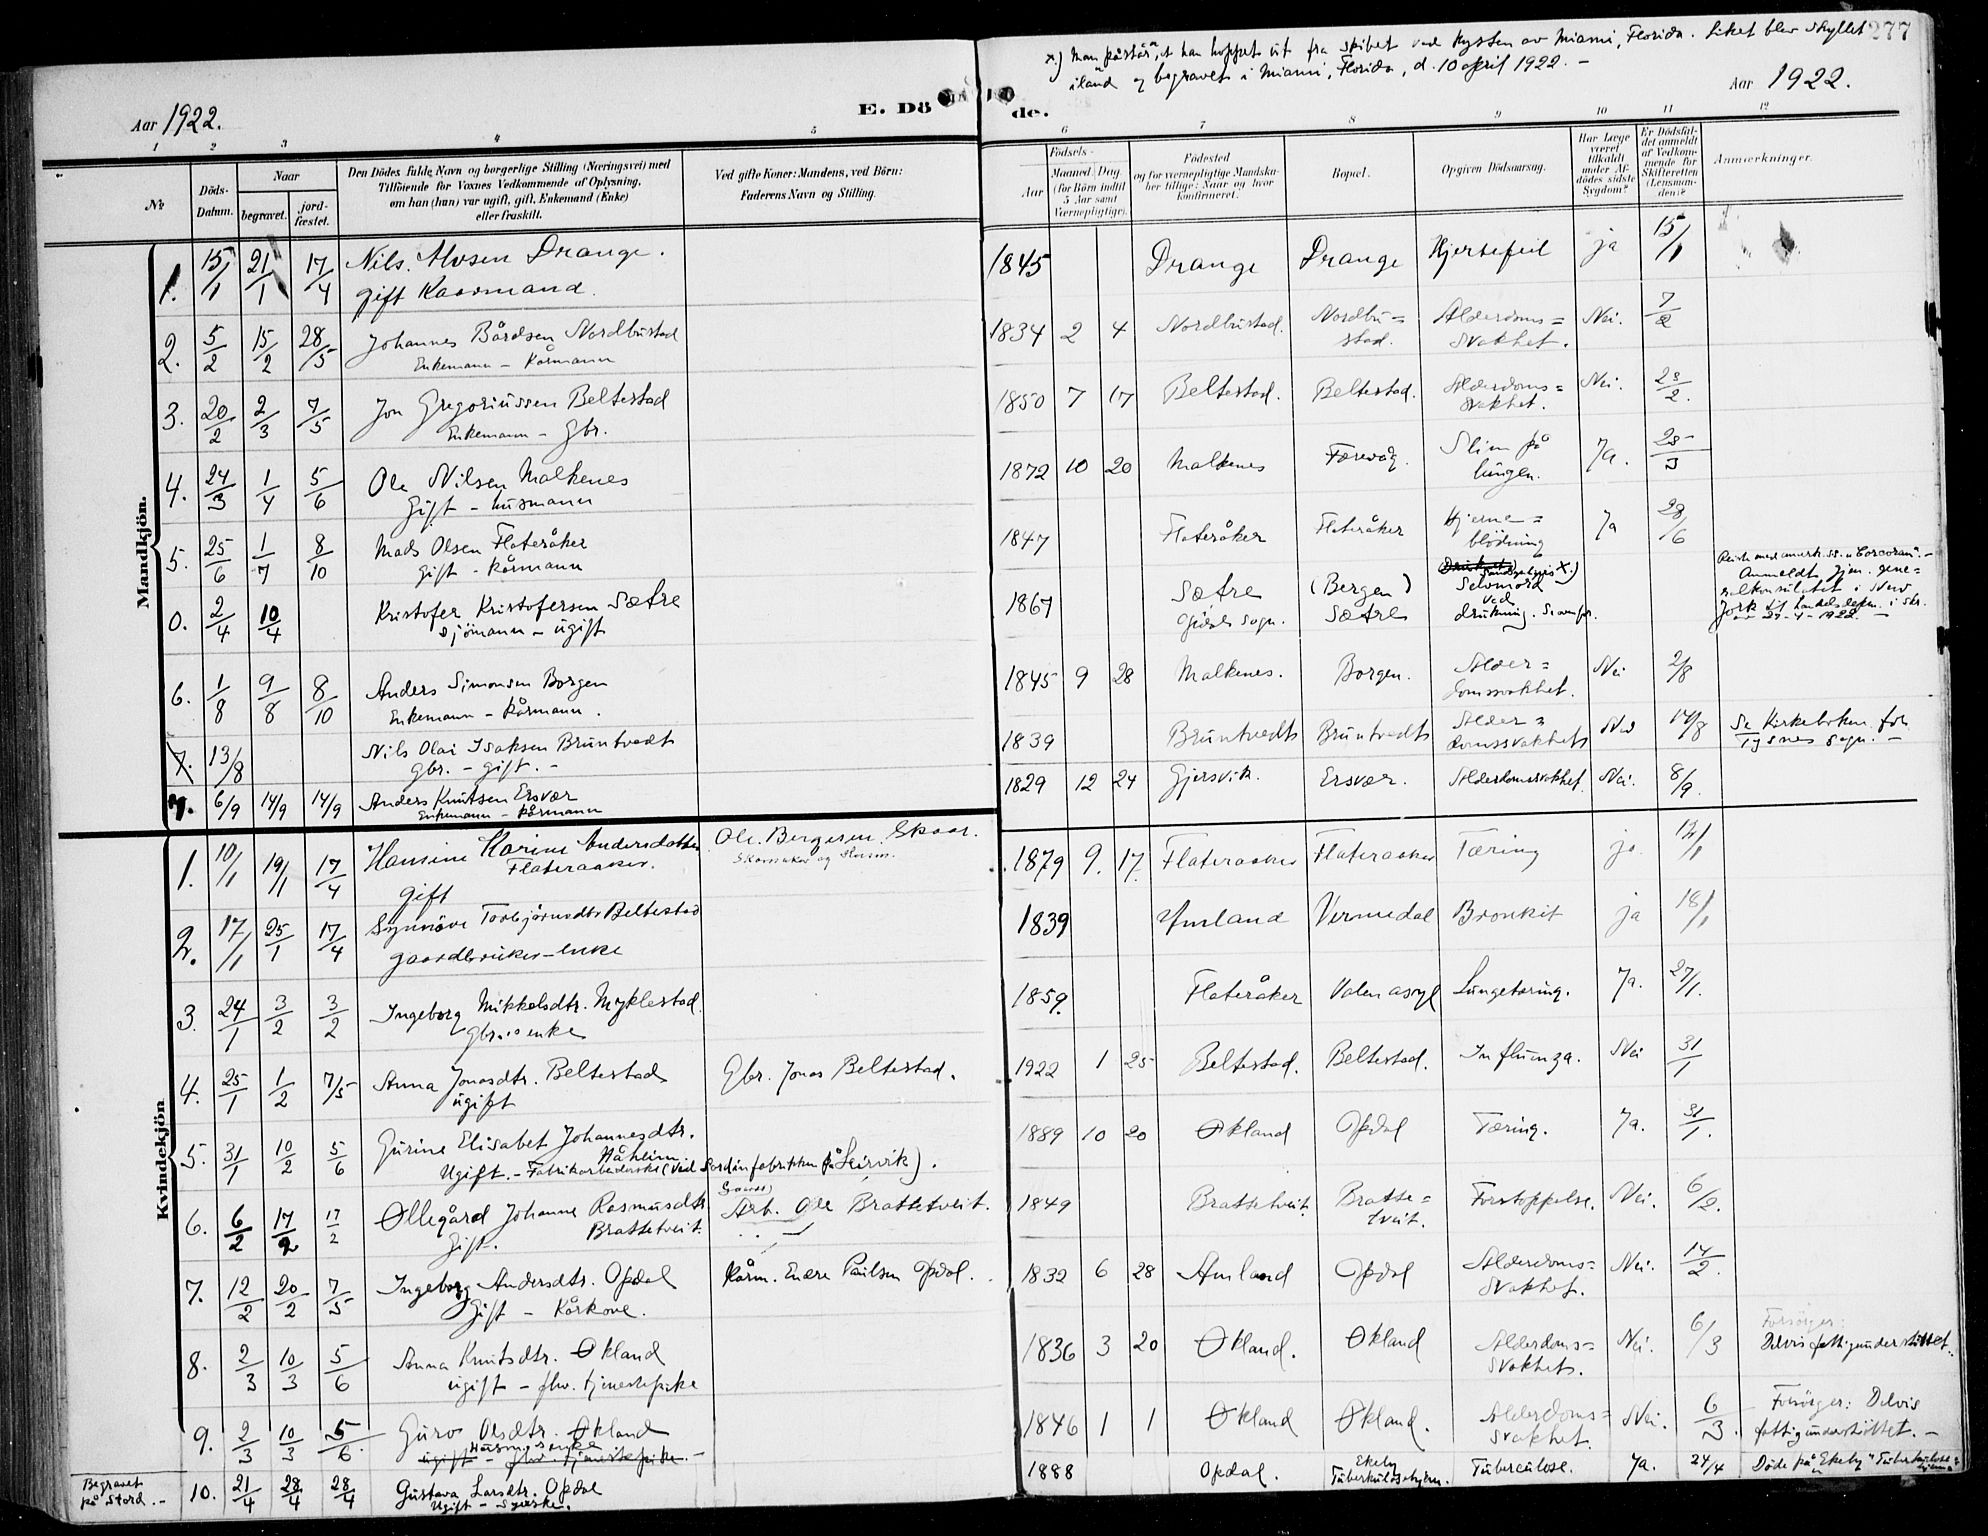 277
x.) Man påstår, at han hoppet ut fra skibet ved kysten av Miami, Florida. Liket blev skyllet
iland og begravet i Miami, Florida, d. 10 april 1922. –
Aar 1922.
E. Døde.
Aar 1922.
1 2 3 4 5 6 7 8 9 10 11 12
No.
Døds-Datum.
Naar
begravet.
jordfæstet.
Den Dødes fulde Navn og borgerlige Stilling (Næringsvei) med
Tilføiende for Voxnes Vedkommende af Oplysning,
om han (hun) var ugift, gift, Enkemand (Enke)
eller fraskilt.
Ved gifte Koner: Mandens, ved Börn:
Faderens Navn og Stilling.
Fødsels-
Aar
Maaned. Dag.
(for Börn indtil
5 Aar samt
Værnepligtige).
Fødested
og for værnepligtige Mandska-
ber tillige: Naar og hvor
konfirmeret.
Bopæl.
Opgiven Dödsaarsag.
Har Læge
været
tilkaldt
under Af-
dödes sidste
Sygdom?
Er Dödsfal-
det anmeldt
af Vedkom-
mende for
Skifteretten
(Lensman-
den)?
Anmærkninger.
Mandkjön.
1. 15/1 21/1 17/4 Nils Alvsen Drange. 1845 Drange Drange Hjertefeil ja 15/1
gift Kaarmand.
2. 5/2 15/2 28/5 Johannes Bårdsen Nordbustad 1834 2 4 Nordbustad. Nordbu=stad. Alderdoms=svakhet. Nei. 7/2
Enkemann – Kårmann
3. 20/2 2/3 7/5 Jon Gregoriussen Beltestad 1850 7 17 Beltestad. Beltestad. Alderdoms=svakhet. Nei. 23/2.
Enkemann – Gbr.
4. 24/3 1/4 5/6 Ole Nilsen Malkenes 1872 10 20 Malkenes Færevåg. Slim på lungen. Ja. 25/3
Gift – husmann
5. 25/6 1/7 8/10 Mads Olsen Flateråker 1847 Flateråker Flateråker Hjerne=blödning Ja 28/6
Gift – Kårmann
0. 2/4 10/4 Kristofer Kristofersen Sætre 1867 Sætre (Bergen) Sætre Selvmord ved drukning. x.)
Sjömann – ugift
Anmeldt gjen. gene=
ralkonsulatet i New
Jork
6. 1/8 9/8 8/10 Anders Simonsen Borgen 1845 9 28 Malkenes. Borgen. Alder=domssvakhet. Nei 2/8
Enkemann – Kårmann.
7. 13/8 Nils Olai Isaksen Bruntvedt 1839 Bruntvedt Bruntvedt Alder=domssvakhet Nei 14/8 Se Kirkeboken for
Gbr. – gift. – Tysnes sogn. –
7. 6/9 14/9 14/9 Anders Knutsen Ersvær 1829 12 24 Gjersvik. Ersvær. Alderdomssvakhet. Nei. 8/9.
Enkemann – Kårmann
Kvindekjön
1. 10/1 19/1 17/4 Hansine Karine Andersdatter Ole Bergesen Skaar. 1879 9. 17. Flateraaker Flateraaker Tæring ja. 12/1
Flateraaker. Skomaker og Husm.
gift
2. 17/1 25/1 17/4 Synnöve Torbjörnsdtr Beltestad 1839 Amland Vernedal Bronkit ja 18/1
gaardbruker–enke
3. 24/1 3/2 3/2 Ingeborg Mikkelsdtr. Myklestad. 1859. Flateråker Valen asyl Lungetæring. Ja. 27/1.
Gbr. enke
4. 25/1 1/2 7/5 Anna Jonasdtr. Beltestad Gbr. Jonas Beltestad. 1922 1 25 Beltestad. Beltestad. Influenza. Nei 31/1
ugift
5. 31/1 10/2 5/6 Gurine Elisabet Johannesdtr. Håheim. 1889 10 20 Økland Opdal Tæring. Ja. 31/1.
Ugift. – Fabrikarbeiderske (ved Sardinfabrikken på Leirvik).
6. 6/2 17/2 17/2 Øllegård Johanne Rasmusdtr. Brattetveit. Arb. Ole Brattetveit. 1849 Brattetveit. Bratte=tveit. Forstoppelse. Nei. 6/2.
Gift.
7. 12/2 20/2 7/5 Ingeborg Andersdtr. Opdal Kårm. Endre Paulsen Opdal. 1832 6 28 Amland Opdal Alderdoms=svakhet. Nei. 14/2.
Gift – Kårkone.
8. 2/3 10/3 5/6 Anna Knutsdtr. Økland 1836 3 20 Økland. Økland Alderdoms=svakhet. Nei. 6/3 Forsörger:
ugift – fhv. tjenestepike Delvis fattigunderstöttet.
9. 2/3 10/3 5/6. Guro Olsdtr. Økland 1846 1 1 Økland Økland. Alderdoms=svakhet. Nei. 6/3. Forsörger: Delvis
Husmannsenke fattigunderstöttet. –
ugift – fhv. tjenestepike. –
Begravet
på Stord. –
10. 21/4 28/4 28/4 Gustava Larsdtr. Opdal 1888 Opdal. Ekeby Tuberkulosehjem. Tuberculose. Ja. 24/4 Døde på "Ekeby" Tuberkulose=hjem
Ugift – syerske.